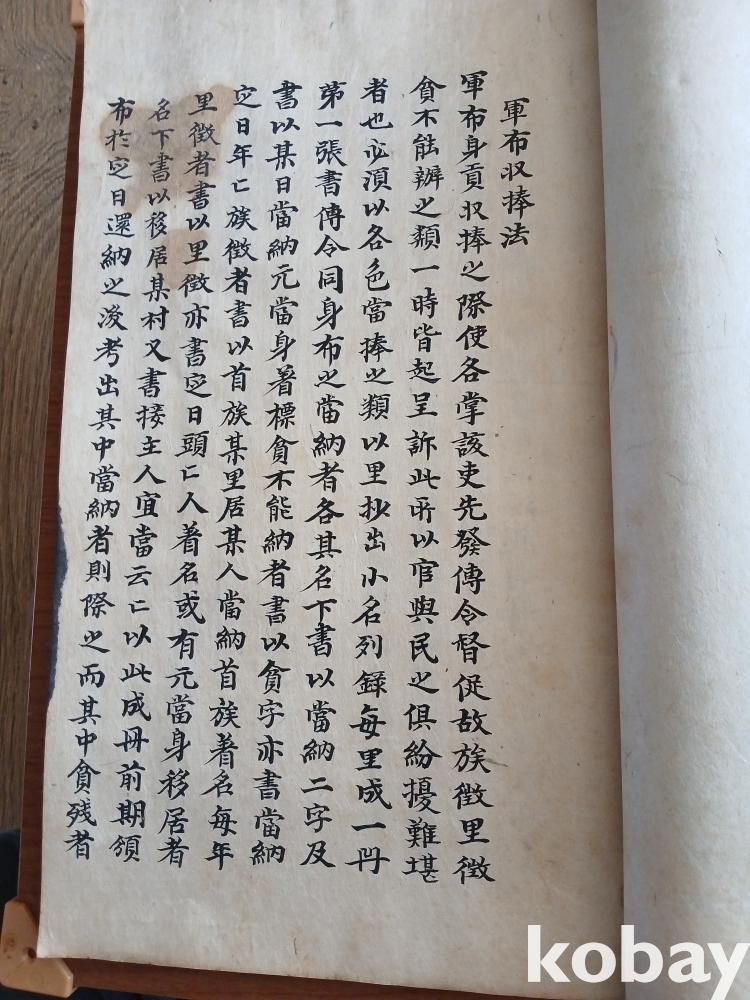 軍布収捧法
軍布身貢収捧之際使各掌該吏先發傳令督促故族徴里徴
貧不能辦之類一時皆起呈訴此所以官與民之俱紛擾難堪
者也必湏以各色當捧之類以里抄出小名列録每里成一冊
苐一張書傳令同身布之當納者各其名下書以當納二字及
書以某日當納元當身着標貧不能納者書以貧字亦書當納
㝎日年亡族徴者書以首族某里居某人當納首族着名每年
里徴者書以里徴亦書㝎日頭亡人着名或有元當身移居者
名下書以移居某村又書接主人宜當云亡以此成冊前期頒
布扵㝎日還納之後考出其中當納者則際之而其中貧残者
kobay